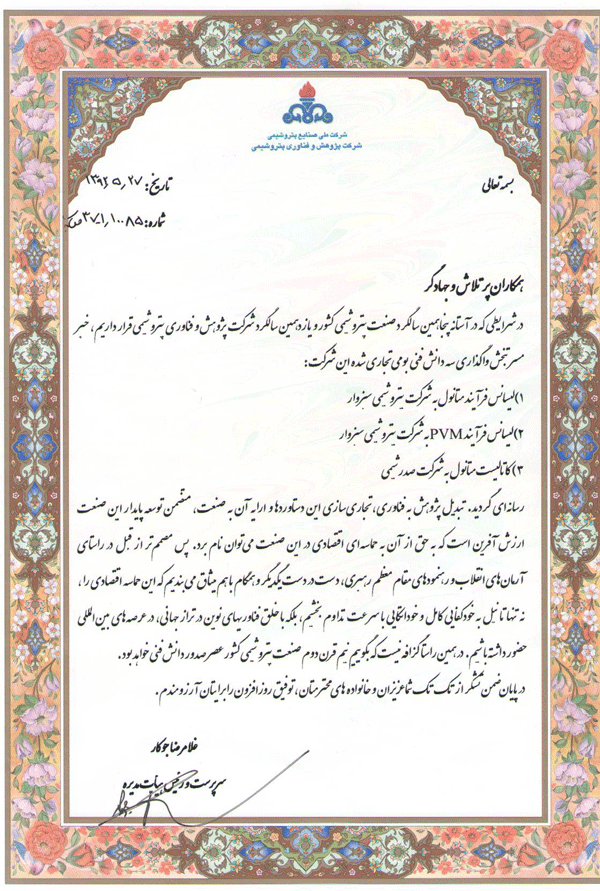 شرکت ملی صنایع پتروشیمی
شرکت پژوهش و فناوری پتروشیمی
بسمه تعالی
تاریخ: ۱۳۹۲٫۵٫۲۷
شماره: ۳۷۱٫۱۰۰۸۵
همکاران پر تلاش و جهادگر
در شرایطی که در آستانه پنجاهمین سالگرد صنعت پتروشیمی کشور و یازدهمین سالگرد شرکت پژوهش و فناوری پتروشیمی قرار داریم، خبر
مسرتبخش واگذاری سه دانش فنی بومی تجاری شده این شرکت:
۱) لیسانس فرآیند متانول به شرکت پتروشیمی سبزوار
۲) لیسانس فرآیند PVM به شرکت پتروشیمی سبزوار
۳) کاتالیست متانول به شرکت صدر شیمی
رسانه ای گردید. تبدیل پژوهش به فناوری، تجاری سازی این دستاوردها و ارایه آن به صنعت، متضمن توسعه پایدار این صنعت
ارزش آفرین است که به حق از آن به حماسه ای اقتصادی در این صنعت می توان نام برد. پس مصمم تر از قبل در راستای
آرمان های انقلاب و رهنمودهای مقام معظم رهبری، دست در دست یکدیگر و همگام با هم میثاق می بندیم که این حماسه اقتصادی را،
نه تنها تا نیل به خودکفایی کامل و خوداتکایی با سرعت تداوم بخشیم، بلکه با خلق فناوریهای نوین در تراز جهانی، در عرصه های بین المللی
حضور داشته باشیم. در همین راستا گزافه نیست که بگوییم نیم قرن دوم صنعت پتروشیمی کشور عصر صدور دانش فنی خواهد بود.
در پایان ضمن تشکر از تک تک شما عزیزان و خانواده های محترمتان، توفیق روز افزون را برایتان آرزومندم.
غلامرضا جوکار
سرپرست و رئیس هیات مدیره